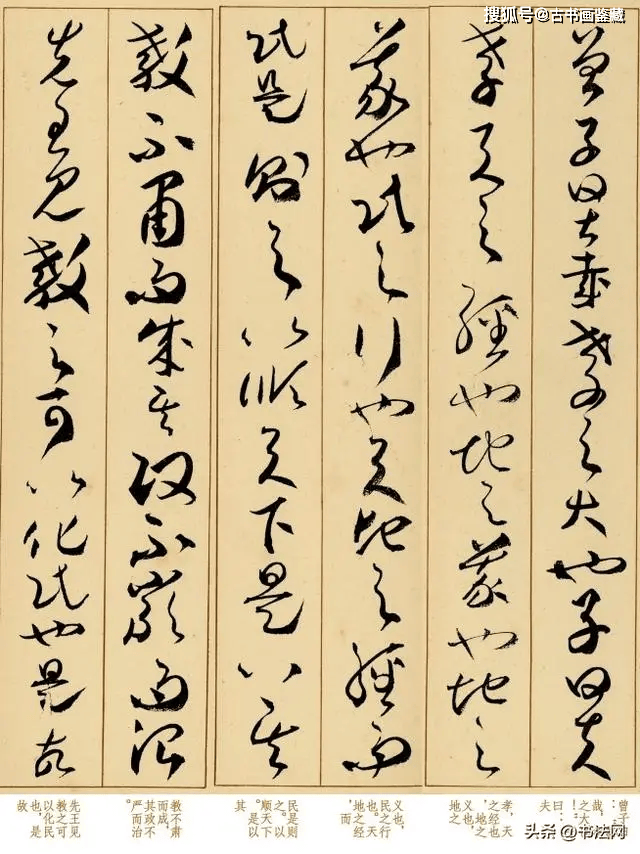 搜狐号@古书画鉴藏
曾子曰甚哉孝之大也子曰夫
孝天之經也地之義也地之
義也民之行也天地之經而
民是則之以順天下是以其
教不肅而成其政不嚴而治
先王見教之可以化民也是故
曾子
哉，
之大
曰：
夫
孝，天
之经也
，地之
义也，
地之
义也，
民之行
也。天
地之经
，而
民是则
之。以
顺天下
。是以
其
教不肃
而成，
其政不
严而治
。
先王见
教之可
以化民
也，是
故
头条@书法网